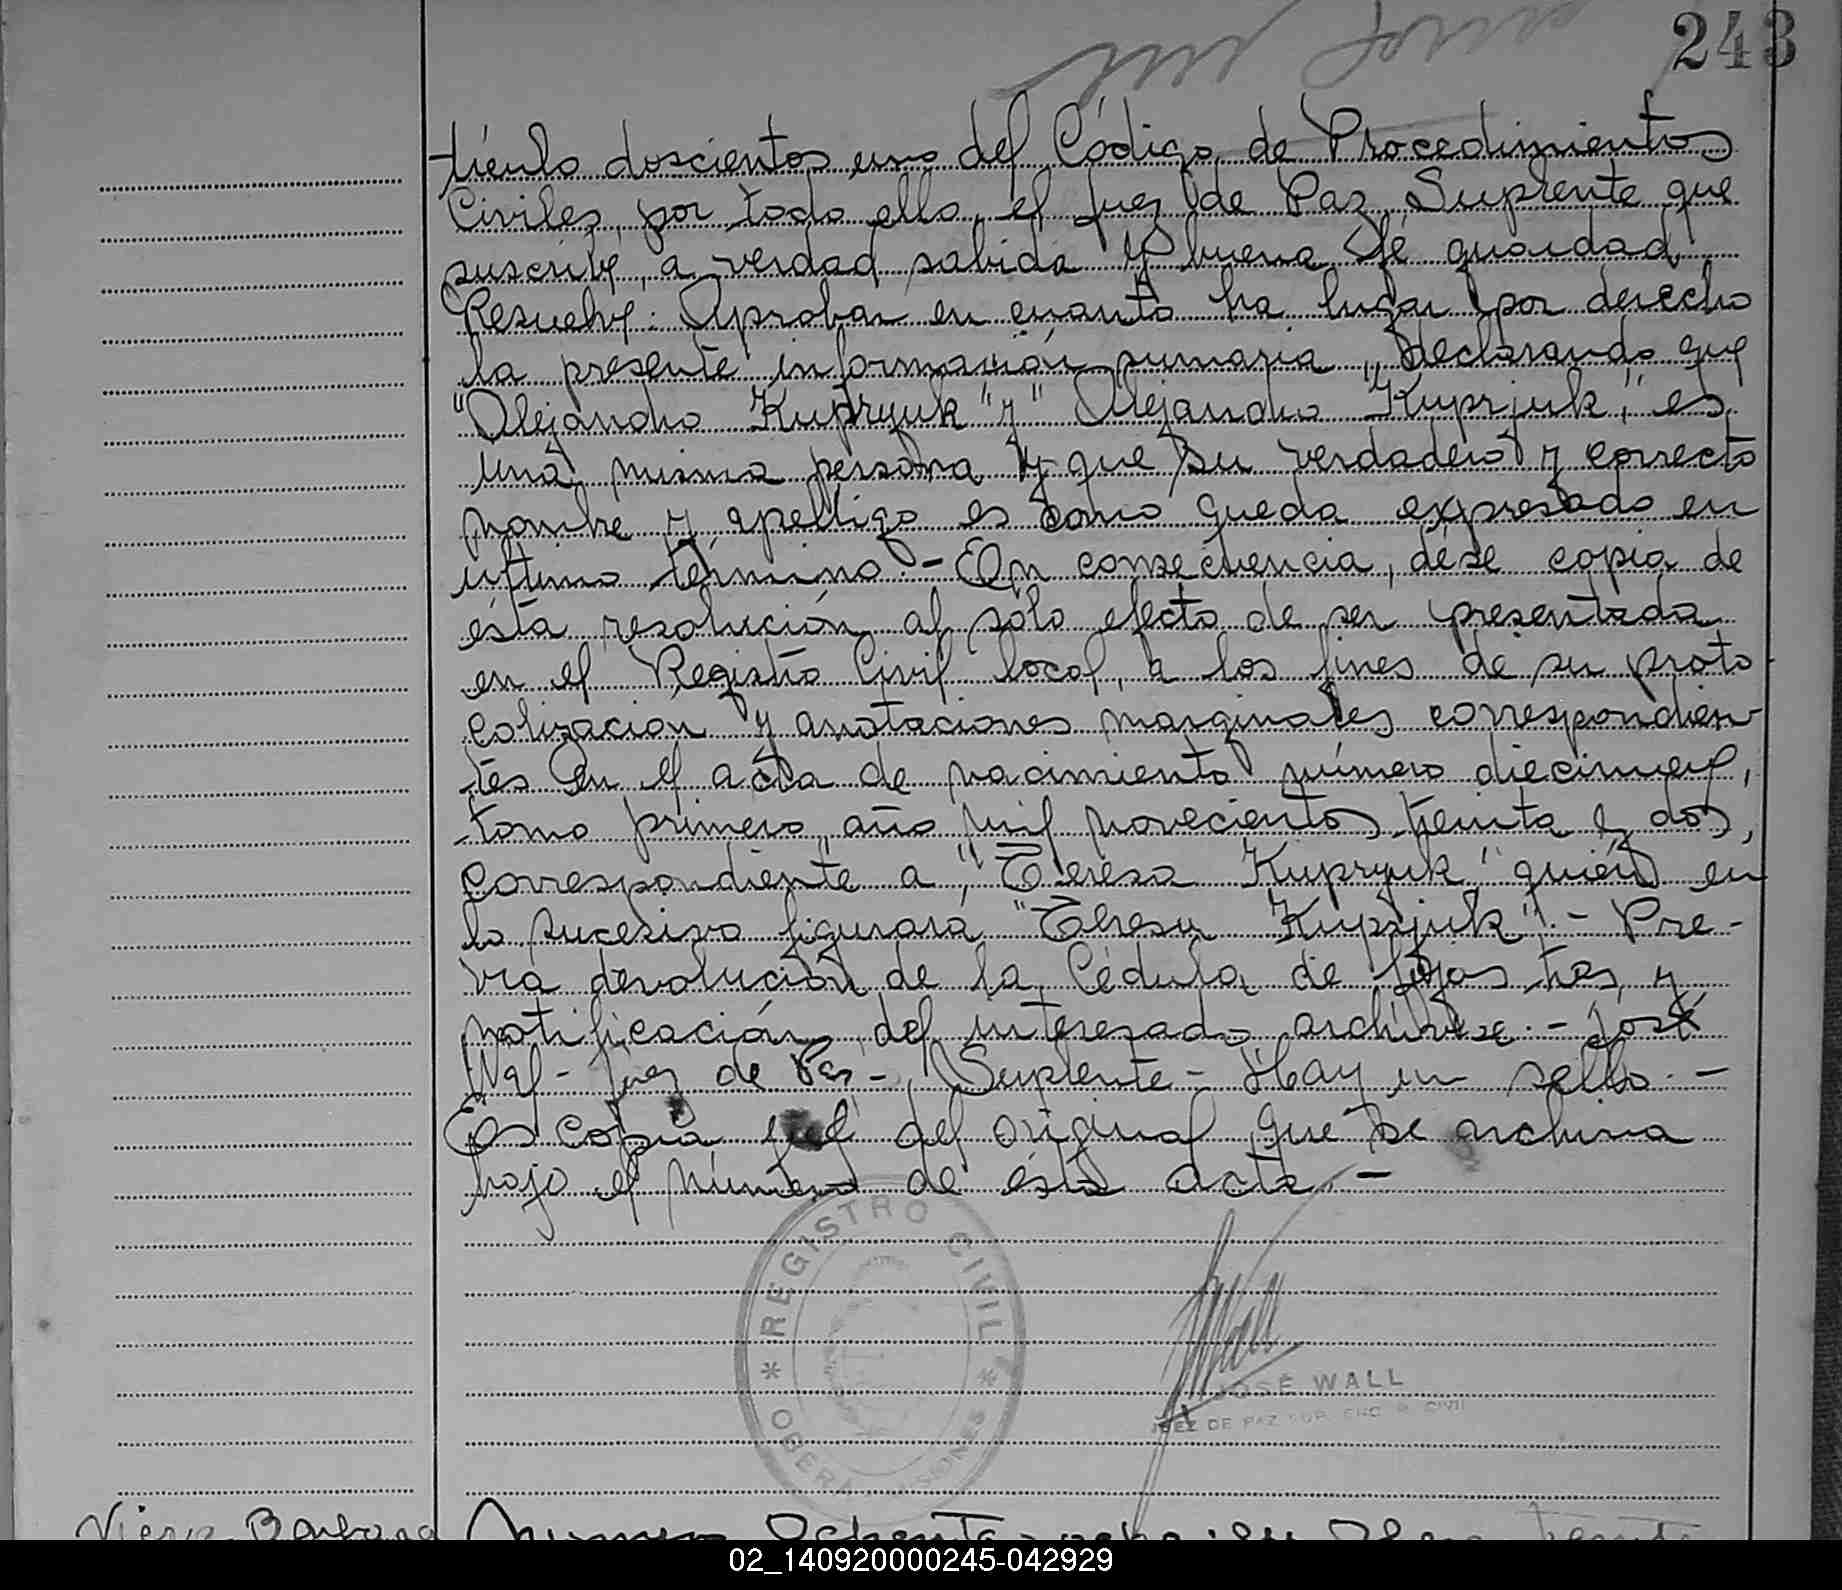 243
tículo doscientos uno del Código de Procedimientos
Civiles, por todo ello, el Juez de Paz Suplente que
suscribe, a verdad sabida y buena fé guardad
Resuelve: Aprobar en cuanto ha lugar por derecho
la presente información sumaria, declarando que
"Alejandro Kupryuk" y "Alejandro Kuprjuk", es
una misma persona y que su verdadero y correcto
nombre y apellido es como queda expresado en
último término.- En consecuencia, dése copia de
ésta resolución al sólo efecto de ser presentada
en el Registro Civil local, a los fines de su proto
colización y anotaciones marginales correspondien-
tes en el acta de nacimiento número diecinueve,
tomo primero, año mil novecientos treinta y dos,
correspondiente a, "Teresa Kupryuk" quién en
lo sucesivo figurará "Teresa Kuprjuk".- Pre-
via devolución de la Cédula de fojas tres, y
notificación del interesado archívese.- José
Wal- Juez de Paz-, Suplente- Hay un sello.-
Es copia fiel del original que se archiva
bajo el número de ésta acta.-
REGISTRO CIVIL
* OBERÁ MISIONES *
JOSÉ WALL
JUEZ DE PAZ SUP. ENC. R. CIVIL
Número ochenta y ocho: En Oberá
02_140920000245-042929